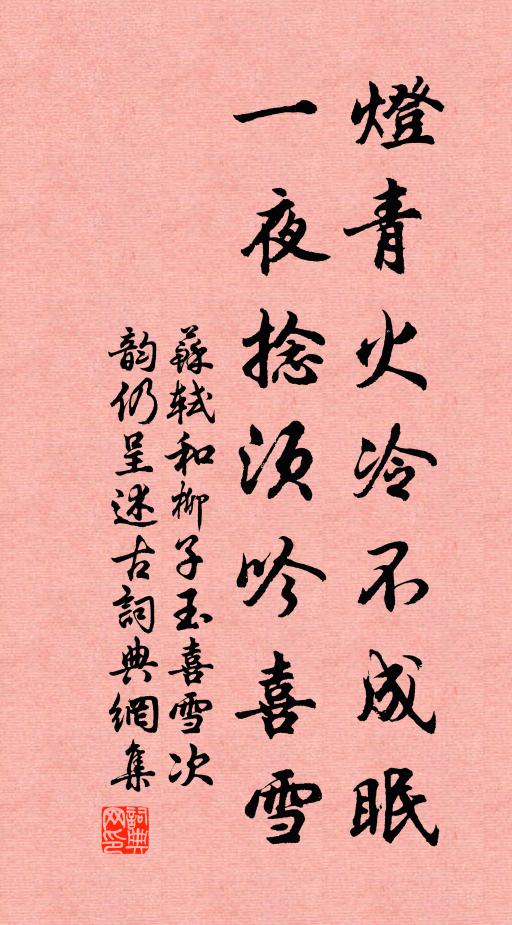 燈青火冷不成眠
一夜捻須吟喜雪
蘇軾和柳子玉喜雪次
韵仍呈述古詞典網集
詞典
网印